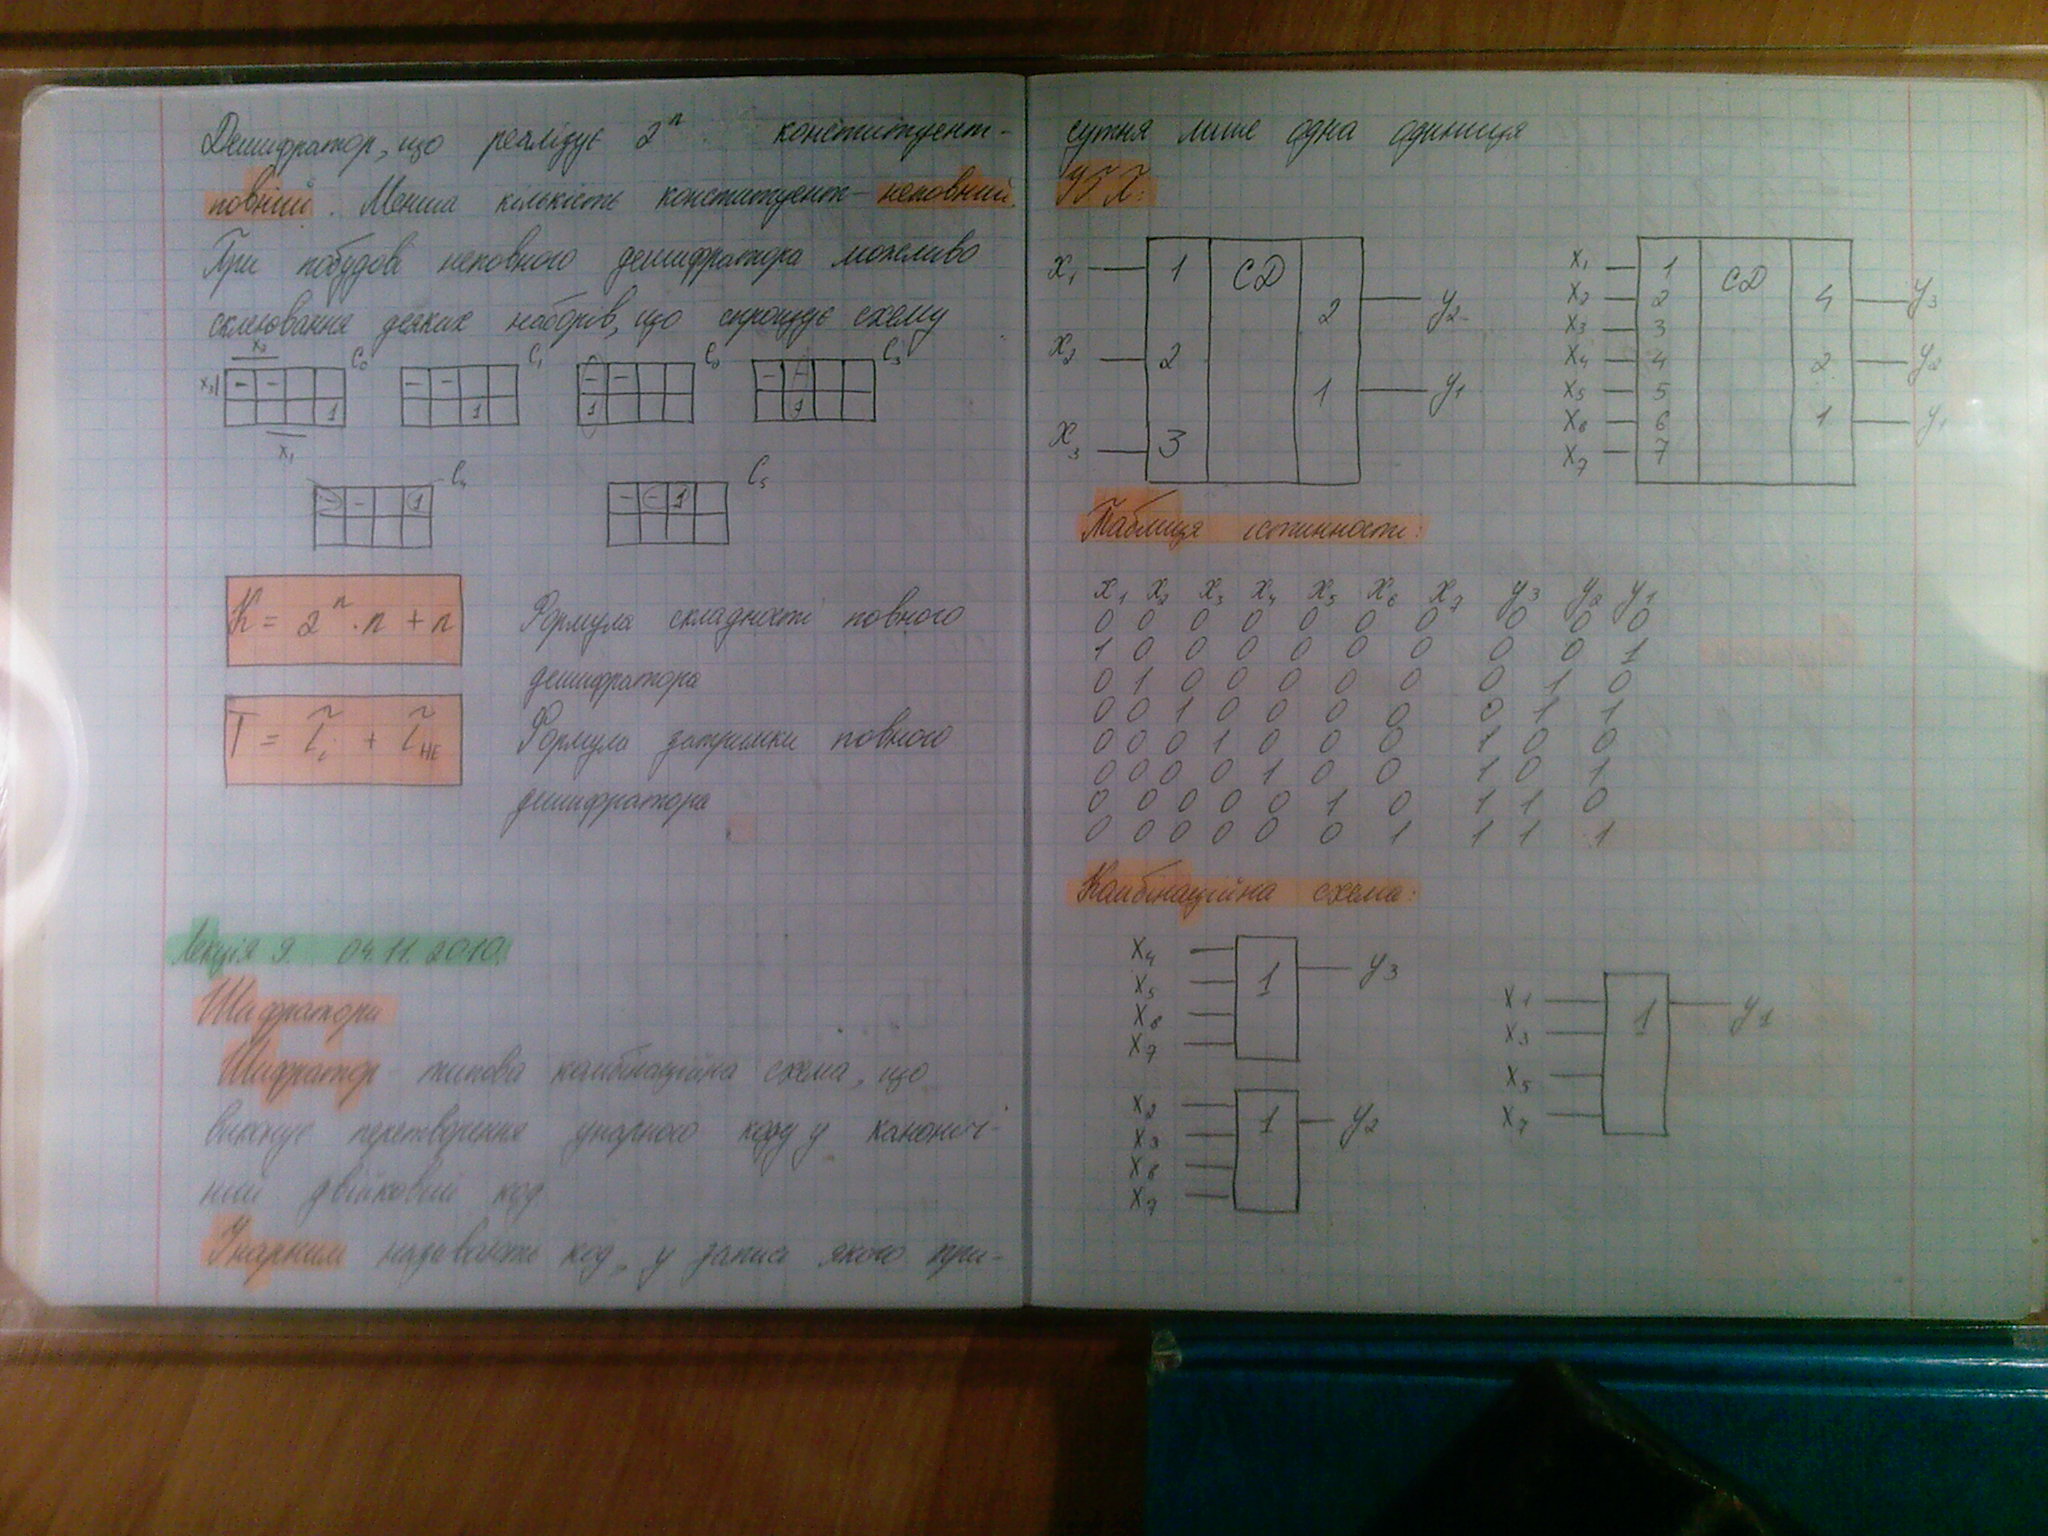 Дешифратор, що реалізує 2ⁿ конституент-
повний. Менша кількість конституент- неповний.
При побудові неповного дешифратора можливо
склеювання деяких наборів, що спрощує схему
x₂ C₀ C₁ C₂ C₃
x₃ - - - - - - - -
1 1 1 1
x₁
C₄ C₅
- - 1 - - 1
K = 2ⁿ · n + n Формула складності повного
дешифратора
T = τ̃ᵢ + τ̃ НЕ Формула затримки повного
дешифратора
Лекція 9. 04.11.2010.
Шифратори
Шифратор - типова комбінаційна схема, що
виконує перетворення унарного коду у каноніч-
ний двійковий код
Унарним називають код, у записі якого при-
сутня лише одна одиниця
УГХ:
x₁ 1 CD 2 y₂
x₂ 2 1 y₁
x₃ 3
x₁ 1 CD 4 y₃
x₂ 2
x₃ 3
x₄ 4 2 y₂
x₅ 5
x₆ 6 1 y₁
x₇ 7
Таблиця істинності:
x₁ x₂ x₃ x₄ x₅ x₆ x₇ y₃ y₂ y₁
0 0 0 0 0 0 0 0 0 0
1 0 0 0 0 0 0 0 0 1
0 1 0 0 0 0 0 0 1 0
0 0 1 0 0 0 0 0 1 1
0 0 0 1 0 0 0 1 0 0
0 0 0 0 1 0 0 1 0 1
0 0 0 0 0 1 0 1 1 0
0 0 0 0 0 0 1 1 1 1
Комбінаційна схема:
x₄ 1 y₃
x₅
x₆
x₇
x₂ 1 y₂
x₃
x₆
x₇
x₁ 1 y₁
x₃
x₅
x₇